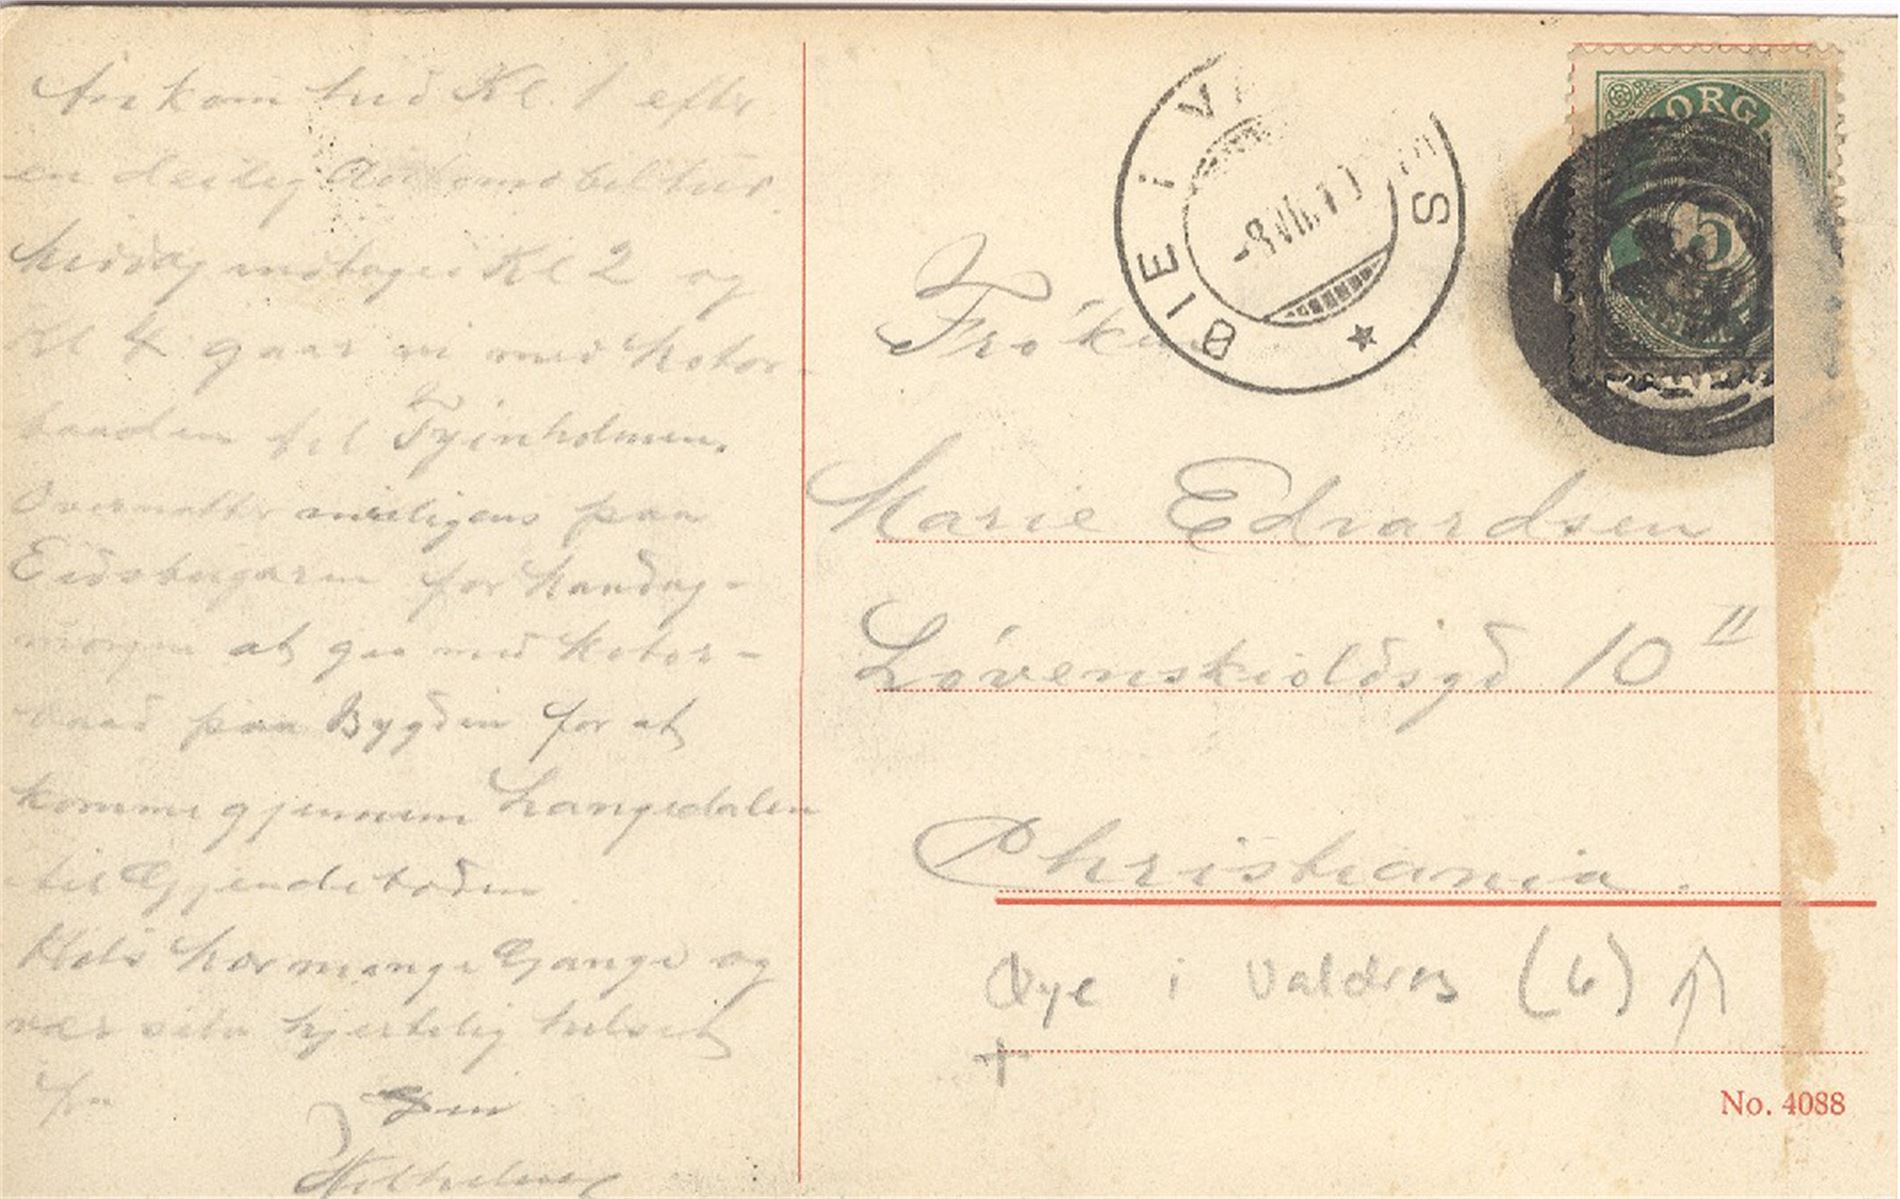 Ankom hid Kl. 1 efter
en deilig Automobiltur.
Middag indtages Kl 2 og
Kl 4 gaar vi med Motor-
baaden til Tyinholmen.
Overnatter paa
Eidsbugaren for Mandag-
morgen at gaa med Motor-
baad paa Bygdin for at
komme gjennem Langedalen
til Gjendeboden
mange Gange og
vær selv hjertelig hilset
fra
Din
Wilhelm
Frøken
Marie Edvardsen
Løvenskioldsgd 10 II
Christiania.
Øye i Valdres (6)
+
No. 4088
ØIE i VA S
VII
NORGE
5